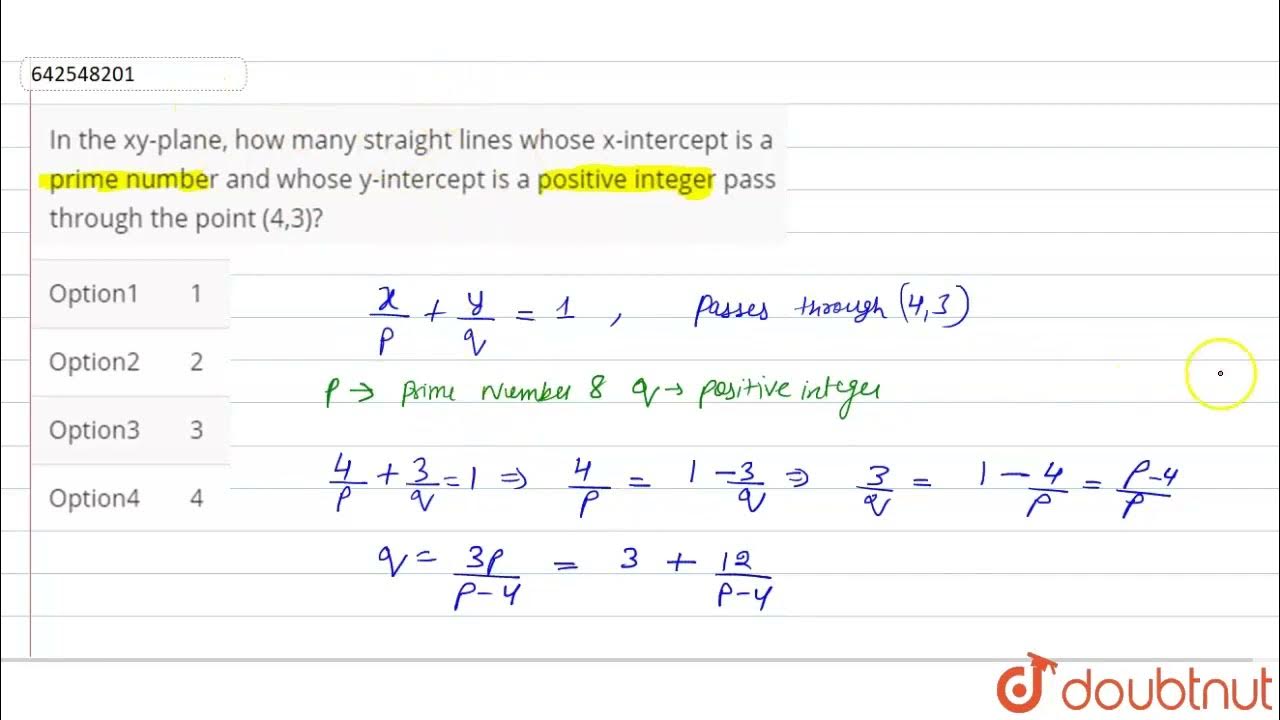 642548201
In the xy-plane, how many straight lines whose x-intercept is a
prime number and whose y-intercept is a positive integer pass
through the point (4,3)?
Option1 1
Option2 2
Option3 3
Option4 4
x/p + y/q = 1 , Passes through (4,3)
P → Prime Number & q → positive integer
4/p + 3/q = 1 ⇒ 4/p = 1 - 3/q ⇒ 3/q = 1 - 4/p = p-4/p
q = 3p/p-4 = 3 + 12/p-4
doubtnut